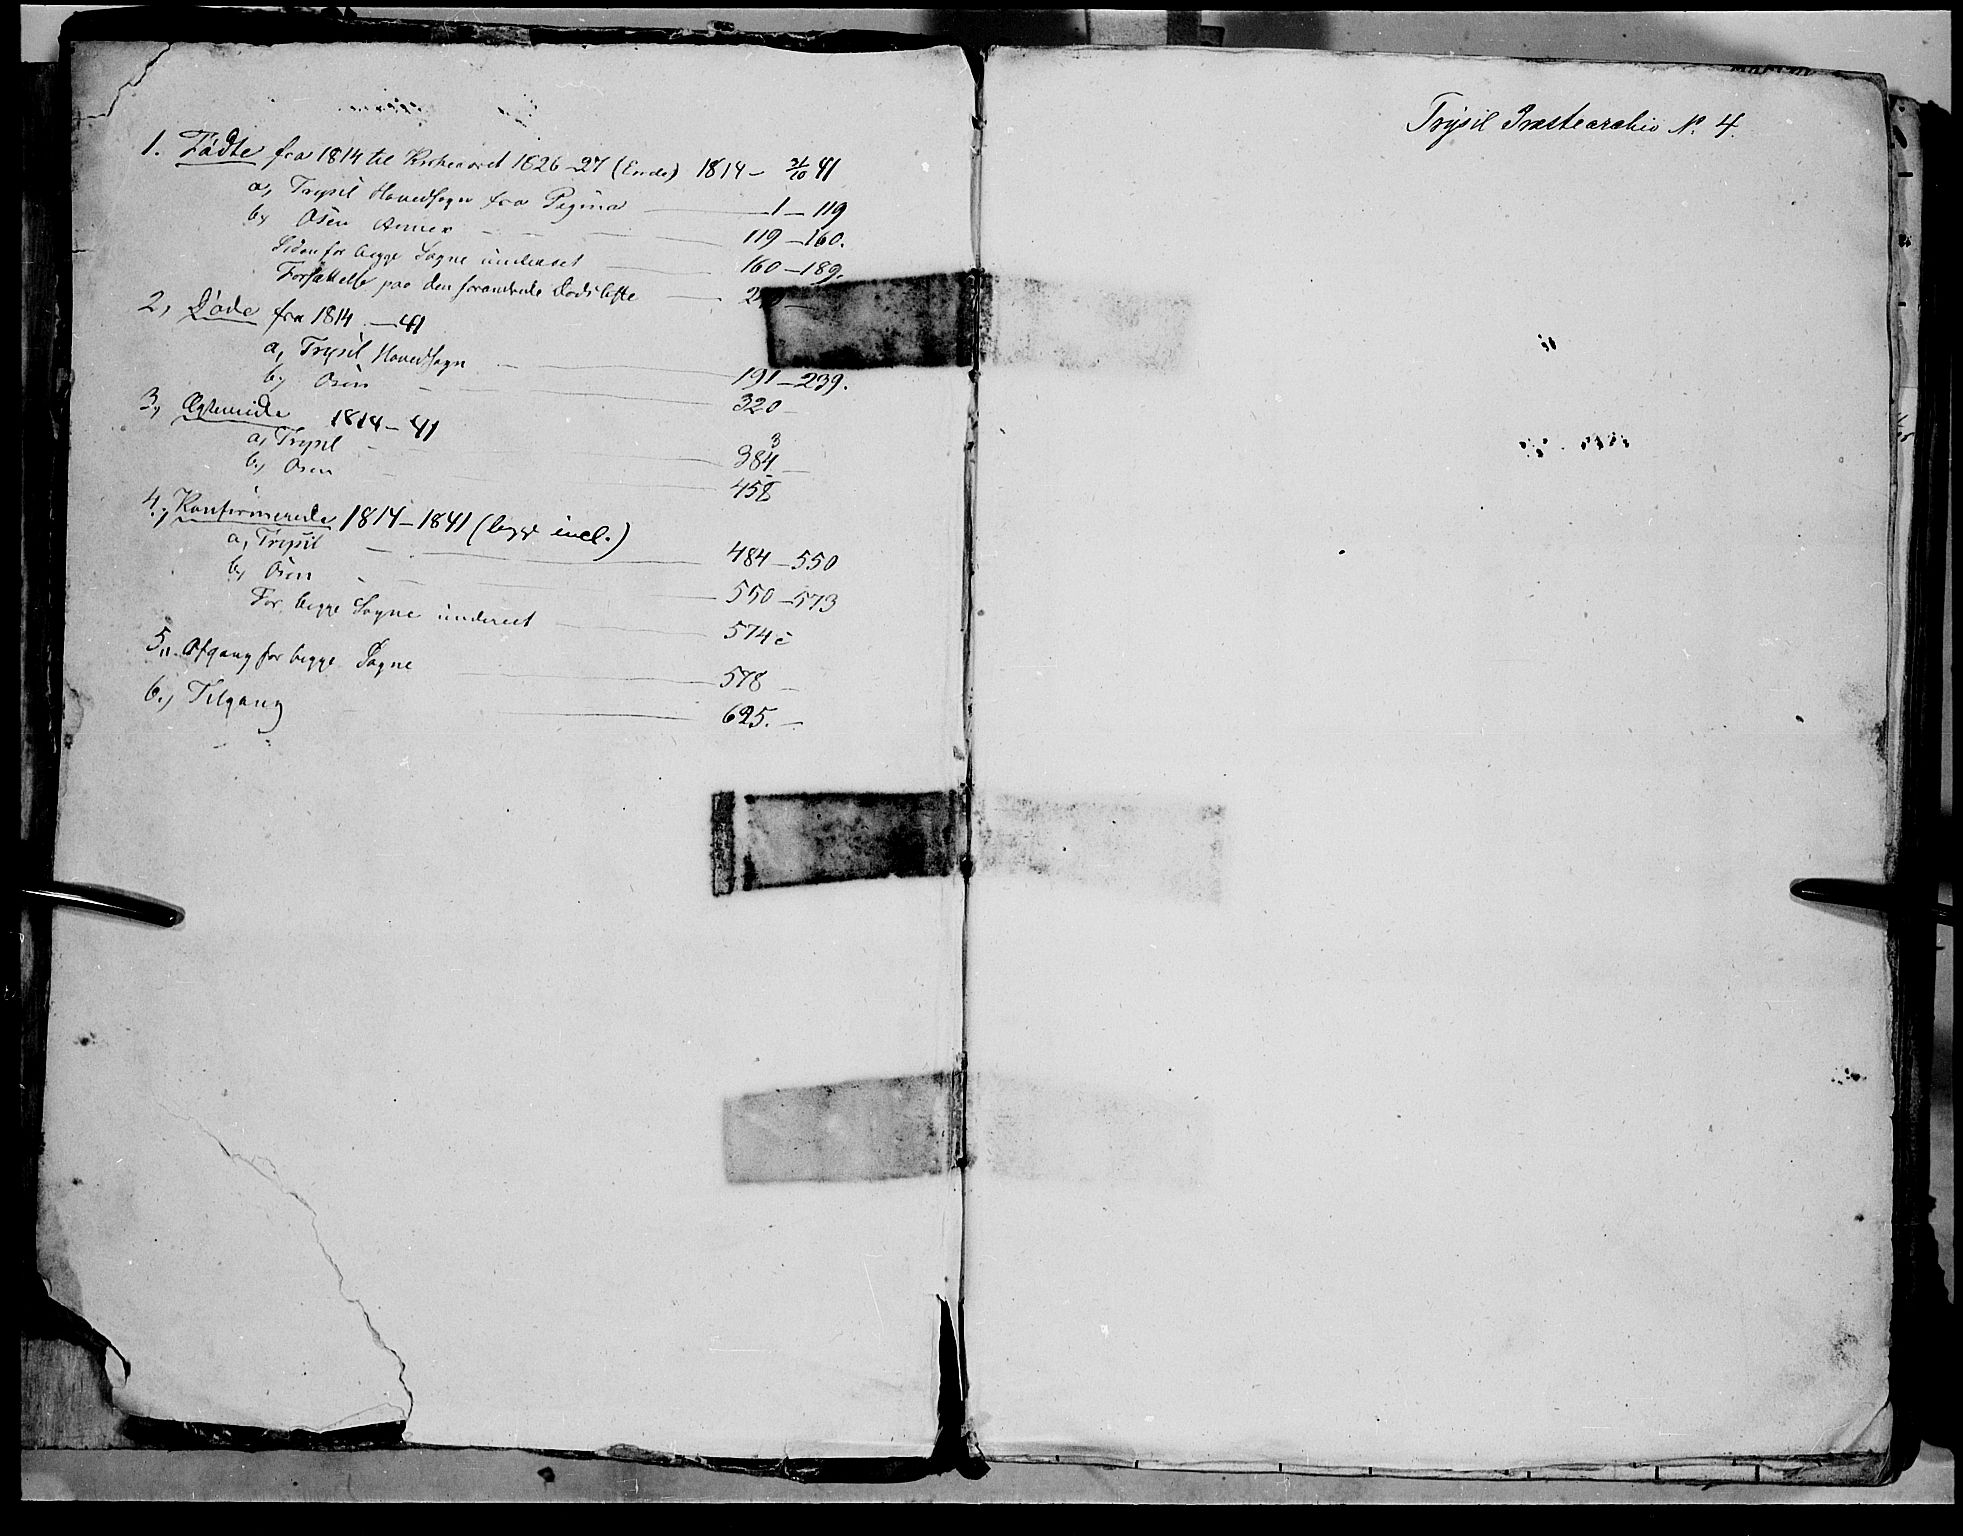 1. Fødte fra 1814 til Kirkeaaret 1826-27 (Ende) 1814 - 31/10 41
a, Trysil Hovedsogn fra Pagina 1 - 119
b, Osen Annex 119 - 160.
Siden for begge Sogne underet 160 - 189.
Forsættelse paa den forandrede Dødsliste
2, Døde fra 1814 - 41
a, Trysil Hovedsogn 191 - 239.
b, Osen 320 -
3, Ægteviede 1814 - 41
a, Trysil 384 -
b, Osen 458
4, Konfirmerede 1814 - 1841 (begge incl.)
a, Trysil 484 - 550
b, Osen 550 - 573
For begge Sogne underet 574
5,. Afgang for begge Sogne 578 -
6., Tilgang 625. -
Trysil Præstearchiv No. 4.